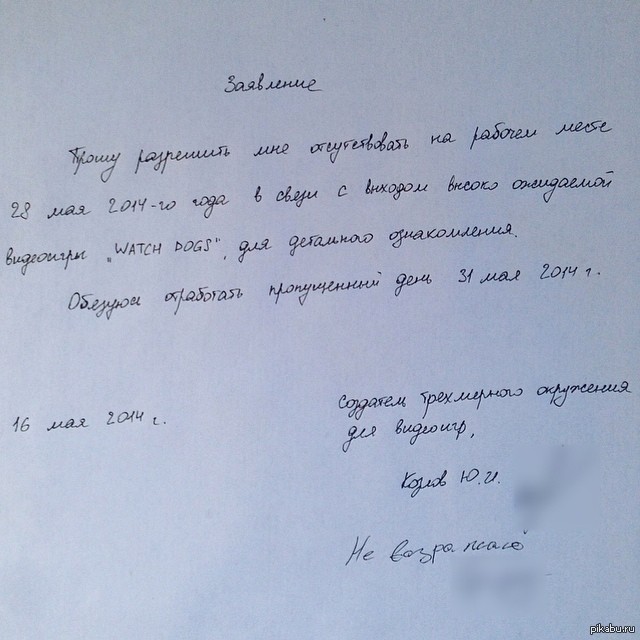 Заявление
Прошу разрешить мне отсутствовать на рабочем месте
28 мая 2014-го года в связи с выходом высоко ожидаемой
видеоигры „WATCH DOGS“, для детального ознакомления.
Обязуюсь отработать пропущенный день 31 мая 2014 г.
16 мая 2014 г.
Создатель трехмерного окружения
для видеоигр,
Козлов Ю.И.
Не возражаю
pikabu.ru